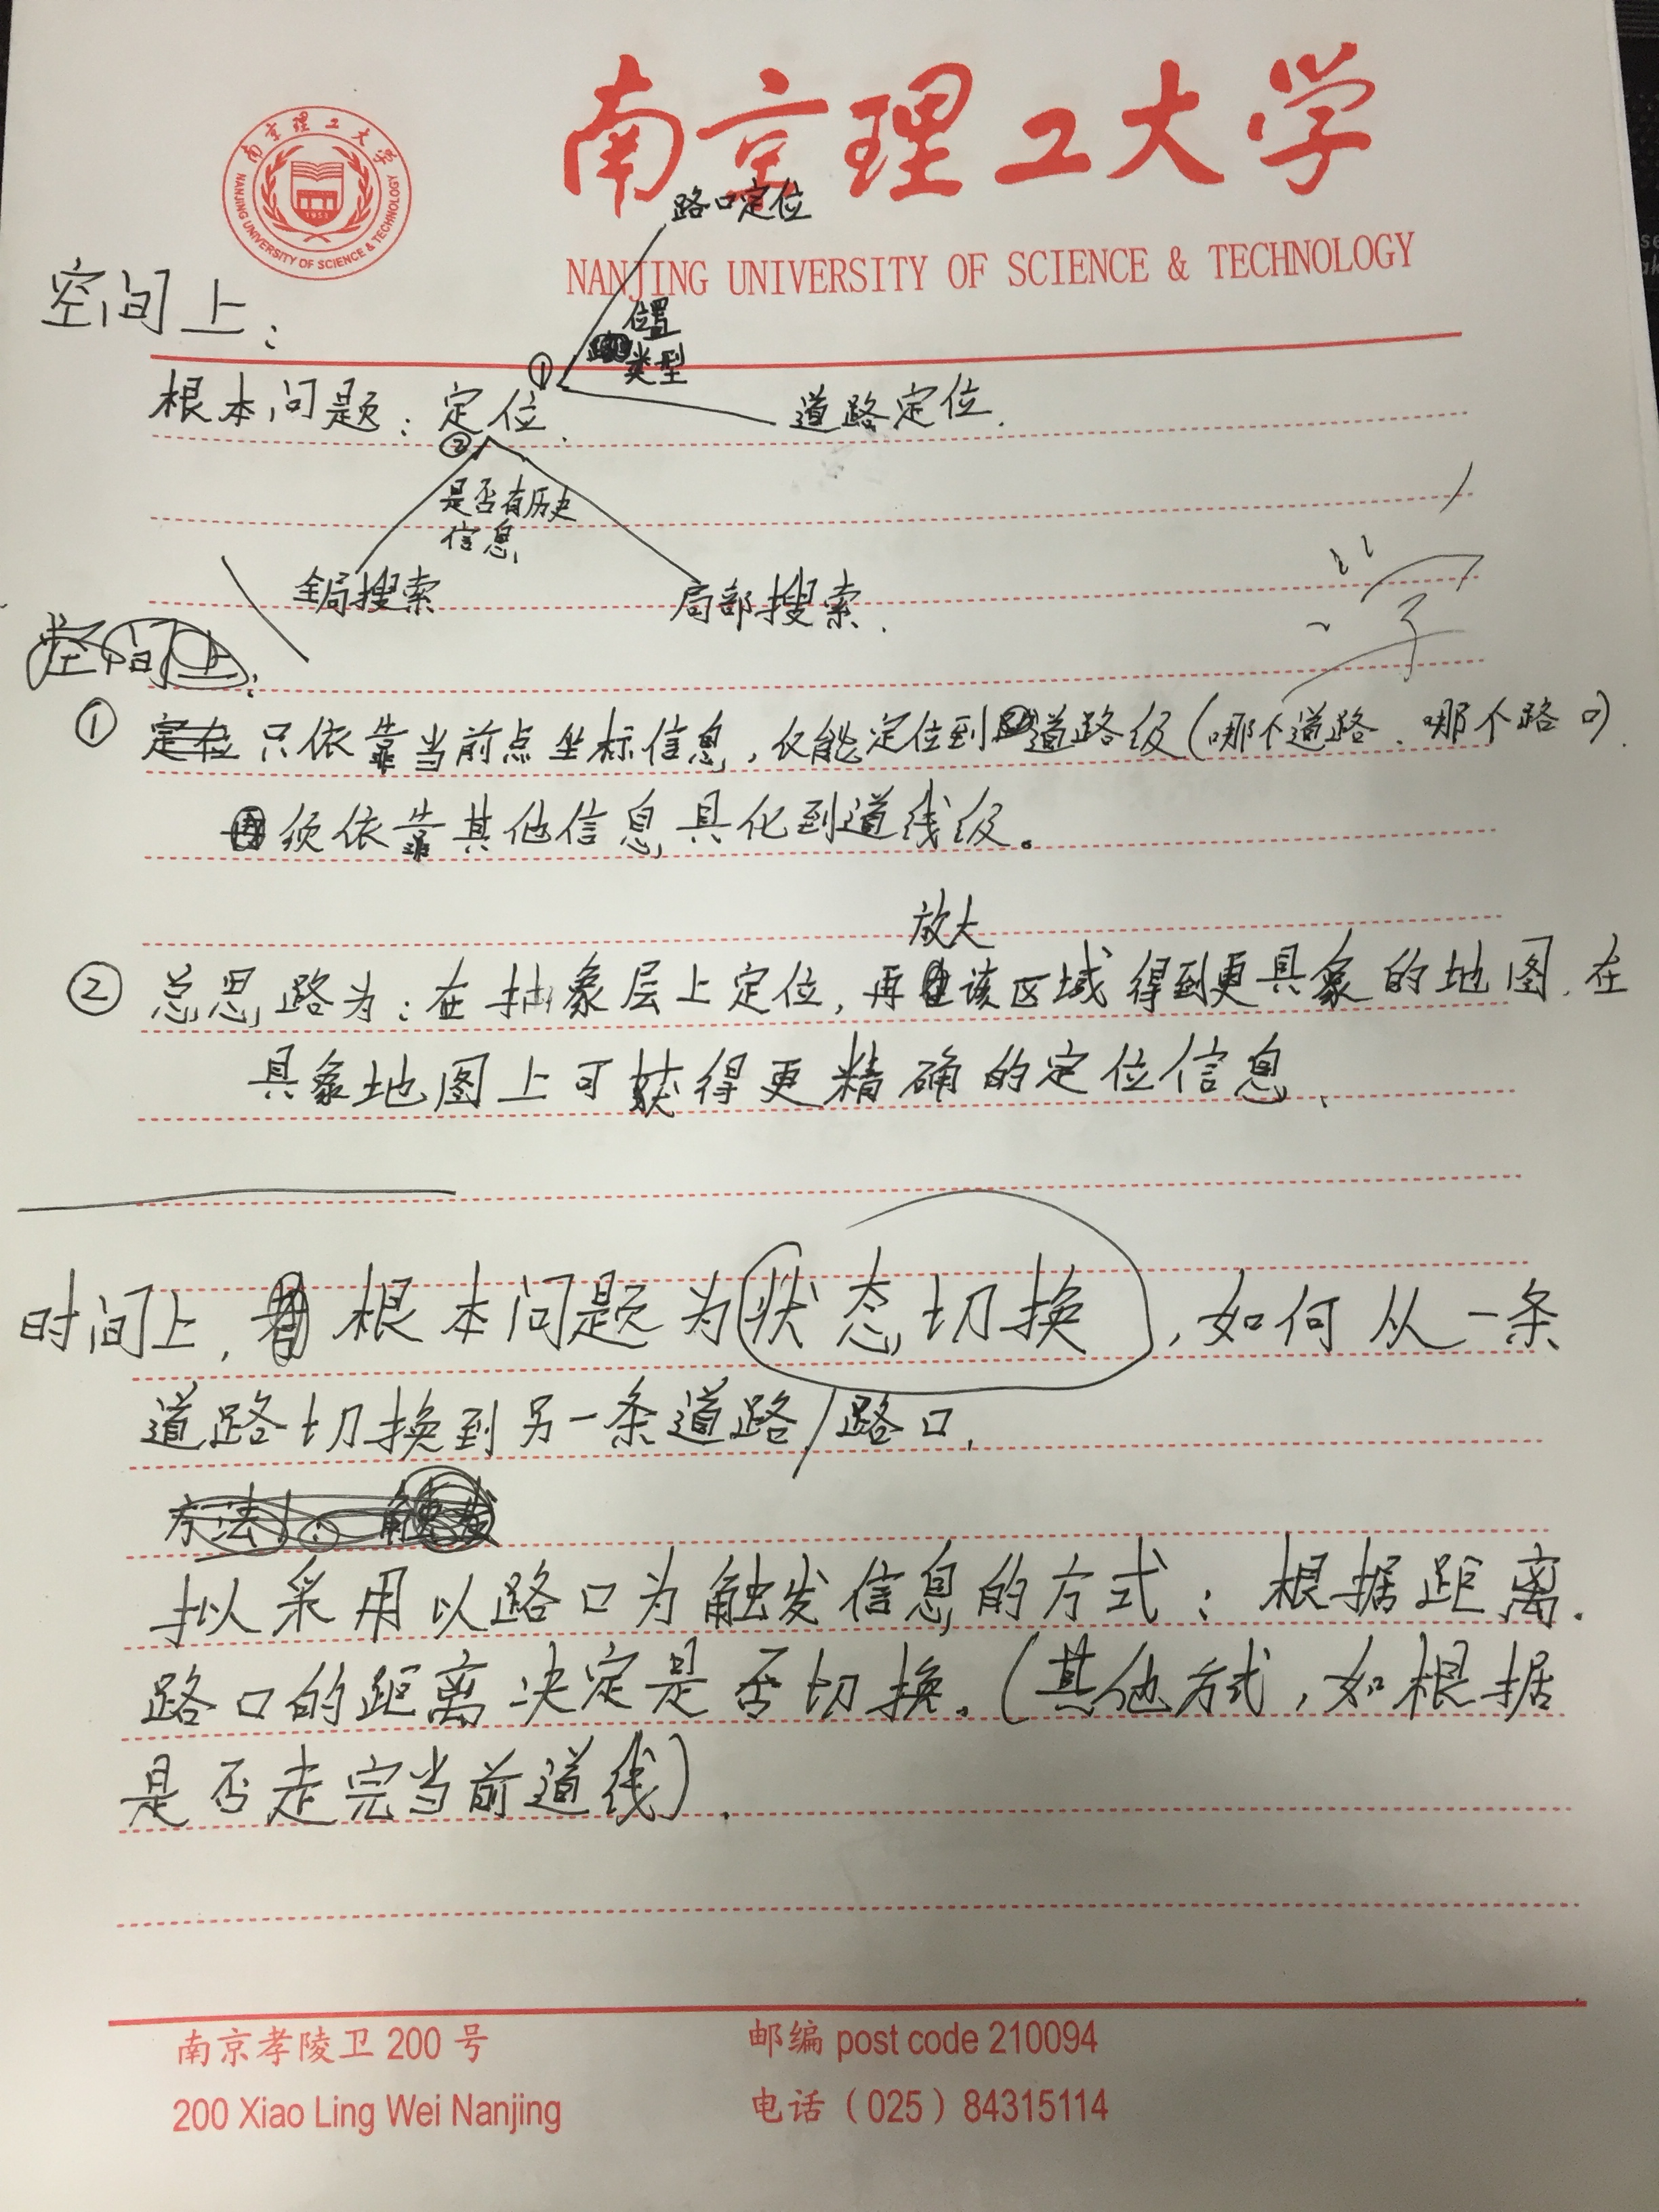 南京理工大学
南京理工大学
NANJING UNIVERSITY OF SCIENCE & TECHNOLOGY
1953
路口定位
NANJING UNIVERSITY OF SCIENCE & TECHNOLOGY
空间上:
位置
类型
①
根本问题:定位.
道路定位.
②
是否有历史
信息
全局搜索
局部搜索.
空间上:
字
① 定位只依靠当前点坐标信息,仅能定位到道路级(哪个道路、哪个路口).
须依靠其他信息具化到道线级。
放大
② 总思路为:在抽象层上定位,再该区域得到更具象的地图.在
具象地图上可获得更精确的定位信息.
时间上,根本问题为状态切换,如何从一条
道路切换到另一条道路/路口.
方法1:触发
拟采用以路口为触发信息的方式:根据距离.
路口的距离决定是否切换.(其他方式,如根据
是否走完当前道线).
南京孝陵卫 200 号
邮编 post code 210094
200 Xiao Ling Wei Nanjing
电话(025)84315114